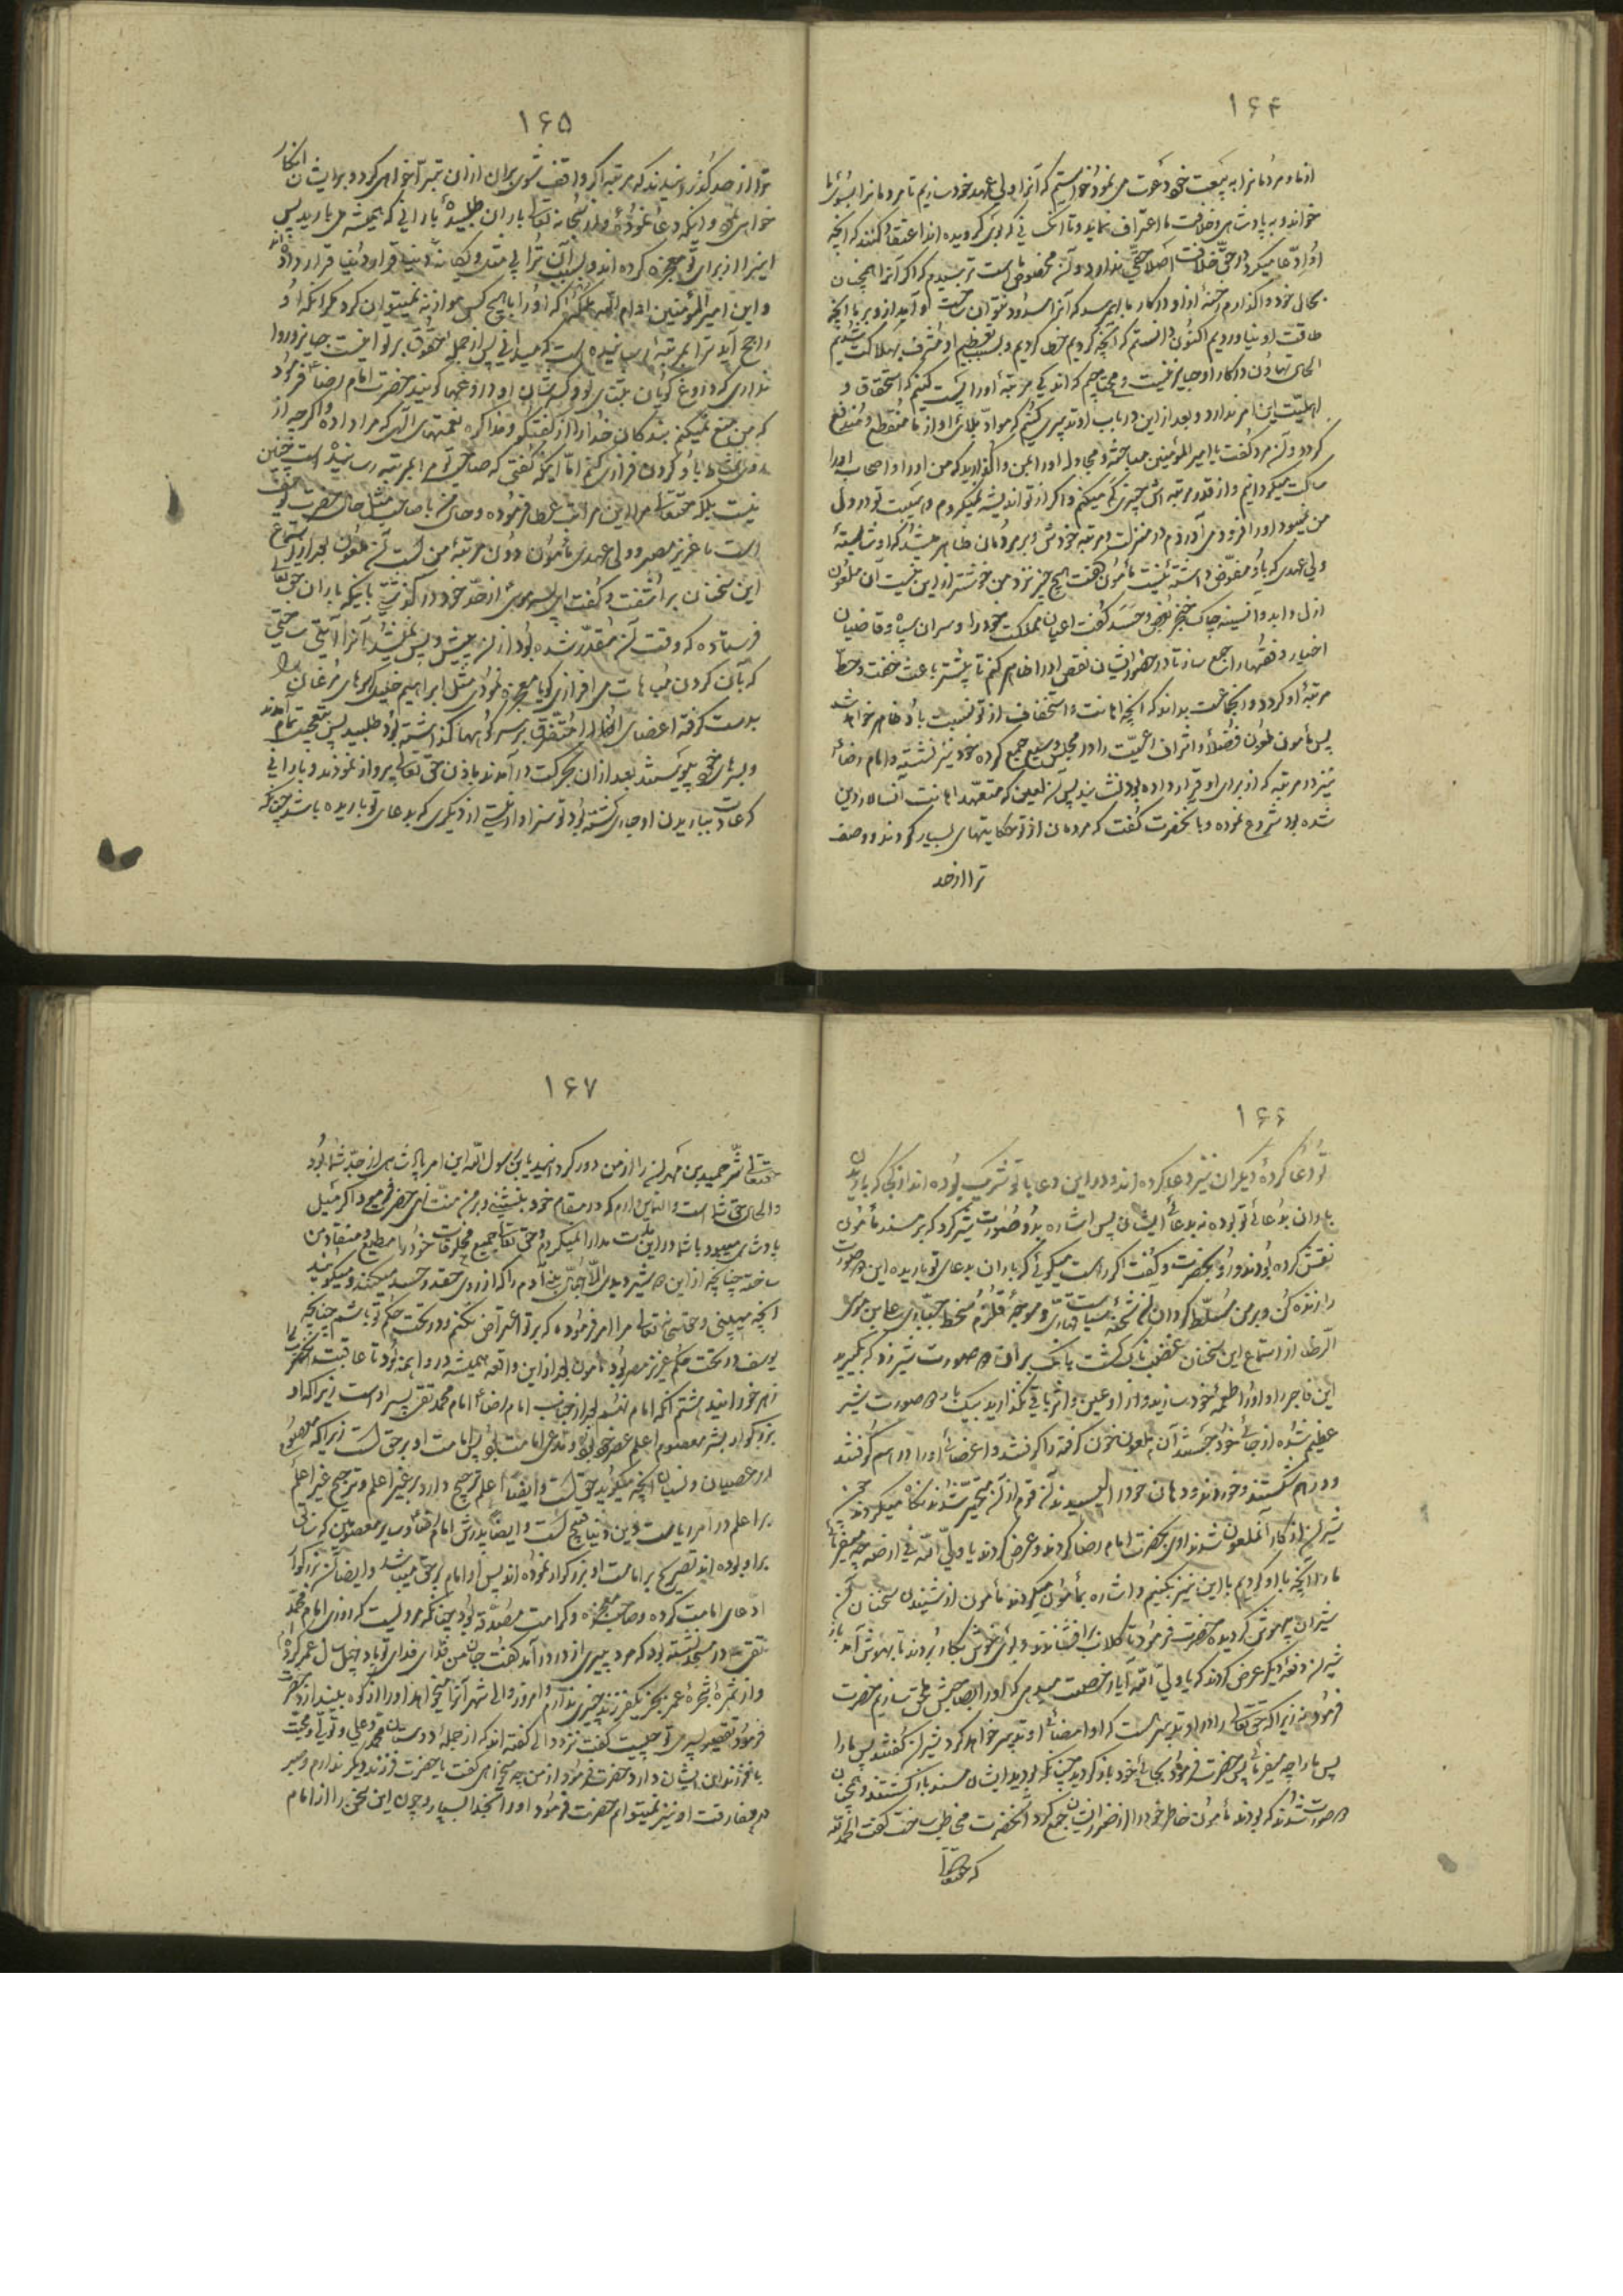 ۱۶۴
از ما و مردمانرا به بیعت خود دعوت می نمود خواستیم که آنرا ولی عهد خود سازیم تا مردمانرا بسوی ما
خواند و به پادشاهی و خلافت ما اعتراف نماید و تا آنکسانی که بوی گرویده اند اعتقاد کنند که آنچه
او ادّعا میکرد در حقّ خلافت اصلا حقّی ندارد و آن مخصوص ماست ترسیدیم که اگر آنرا همچنان
بحال خود واگذارم رخنه از او در کار ما بهم رسد که آنرا مسدود نتوان ساخت و آید از او بر ما آنچه
طاقت او نیاوردیم اکنون دانستم که آنچه کردیم خطا کردیم و بسبب تعظیم او مشرف بهلاکت شدیم
الحال تهاون در کار او جایز نیست و محتاجیم که اندکی مرتبهٔ او را پست کنیم که استحقاق و
اهلیّت این امر ندارد و بعد از این در باب او تدبیری کنیم که موادّ بلای او از ما منقطع و مندفع
گردد و آن مرد گفت یا امیر المؤمنین مباحثه و مجادله او را بمن واگذارید که من او را و اصحاب او را
ساکت میگردانم و از قدر و مرتبه اش چیزی کم میکنم و اگر از تو اندیشه نمیکردم و هیبت تو در دل
من نمیبود او را فرود می آوردم در منزلت و مرتبه خودش و بر مردمان ظاهر میشد که او شایستهٔ
ولی عهدی که باو مفوّض داشتهٔ نیست مأمون گفت هیچ چیز نزد من خوشتر از این نیست آن ملعون
ازل و ابد و از سینه چاک خنجر بغض و حسد گفت اعیان مملکت خود را و سران سپاه و قاضیان
اخیار و فقها را جمع ساز تا در حضور ایشان نقص او را ظاهر کنم تا پیشتر باعث خفت و حطّ
مرتبهٔ او گردد و آنجماعت بدانند که آنچه اهانت و استخفاف از تو نسبت باو ظاهر خواهد شد
پس مأمون ملعون فضلا و اشراف رعیّت را در مجلس وسیع جمع کرده خود نیز نشسته و امام رضا ع
نیز در مرتبه که از برای او قرار داده بود نشانید پس آن لعین که متعهّد اهانت آنسالار دین
شده بود شروع نموده و با آنحضرت گفت که مردمان از تو حکایتهای بسیار کردند و وصف
ترا از حد
۱۶۵
ترا از حد گذرانیدند که مرتبه اگر واقف شوی بر آن از آن تبرّا خواهی کرد و بر ایشان انکار
خواهی نمود و آنکه دعا نمودهٔ و از خدا سبحانه تعالی باران طلبیدهٔ بارانی که همیشه می بارید پس
اینرا از برای تو معجزه کرده اند و بسبب آن ترا بی مثل و یگانهٔ دنیا قرار داده
و این امیر المؤمنین ادام الله ملکه که او را با هیچ کس موازنه نمیتوان کرد مگر آنکه او
راجح آید ترا بمرتبه رسانیده است که میدانی پس از جمله حقوق بر تو این نیست جایز و روا
نداری که دروغ گویان بتّای تو و کسرشان او دروغها گویند حضرت امام رضا ع فرمود
که من منع نمیکنم بندگان خدا را از گفتگو و مذاکره نعمتهای الهی که مرا داده و اگر چه از
روی نشاط باو گردن فرازی کنم امّا اینکه گفتی که صاحب تو مرا بمرتبه رسانیده است چنین
نیست بلکه حقتعالی مرا این مراتب عطا فرموده و حال من با صاحب تو مثل حال حضرت یوسف
است با عزیز مصر و ولی عهدی مأمون دون مرتبهٔ من است آن ملعون بعد از استماع
این سخنان برآشفت و گفت ای پسر موسی از حدّ خود در گذشتی باینکه باران حقتعالی
فرستاده که وقت آن مقدّر شده بود از آن پیش و پس نمیشد آنرا آیتی ساختی
که بآن گردن مباهات می افرازی گویا معجزه نمودی مثل ابراهیم خلیل که سرهای مرغان را
بدست گرفته اعضای آنها را متفرّق بر سر کوهها گذاشته بود طلبید پس بتعجیل تمام آمدند
و بسرهای خود پیوستند بعد از آن بحرکت در آمدند باذن حق تعالی پرواز نمودند و بارانی
که عادت بباریدن او جاری گشته بود تو سزاوار نیستی از دیگری که بدعای تو باریده باشد چنانکه
۱۶۶
تو دعا کردهٔ دیگران نیز دعا کرده اند و در این دعا با تو شریک بوده اند از کجا که باریدن
باران بدعای تو بوده نه بدعای ایشان پس اشاره بدو صورت شیر کرد که بر مسند مأمون
نقش کرده بودند و رو بآنحضرت و گفت اگر راست میگویی که باران بدعای تو باریده این دو صورت
را زنده کن و بر من مسلّط گردان آن شحنهٔ سیاست قهّاری و موجهٔ قلزم سخط جبّاری علی بن موسی
الرضا از استماع این سخنان غضبناک گشت بانگ بر آن دو صورت شیر زد که بگیرید
این فاجر را و او را طعمهٔ خود سازید و از او عین و اثر باقی نگذارید بیکبار آن دو صورت شیر
عظیم شده از جای خود جستند آن ملعون خون گرفته را گرفتند و اعضای او را در هم کوفتند
و در هم شکستند و خوردند و دهان خود را لیسیدند آن قوم از آن متحیّر شدند نگاه میکردند چون
شیران از کار آنملعون شدند روی بحضرت امام رضا کردند و عرض کردند یا ولیّ الله فی ارضه چه میفرمائی
ما را آنچه با او کردیم با این نیز بکنیم و اشاره بمأمون میکردند مأمون از شنیدن سخنان آن
شیران بیهوش گردید حضرت فرمود تا گلاب برافشانند و بوی خوش بکار بردند تا بهوش آمد باز
شیران دفعه دیگر عرض کردند که یا ولیّ الله آیا رخصت میدهی که او را بصاحبش ملحق سازیم حضرت
فرمود نه زیرا که حقتعالی را در او تدبیر هست که او امضای او تدبیر خواهد کرد شیران گفتند پس ما را
پس ما را چه میفرمائی پس حضرت فرمود بجای خود باز گردید چنانکه بودید ایشان بمسند باز گشتند و همچنان
دو صورت شدند که بودند مأمون خاطر خود را از ضرر ایشان جمع کرد آنحضرت مخاطب ساخت گفت الحمد لله
که حقتعالی
۱۶۷
حقتعالی شرّ حمید بن مهران را از من دور گردانید یابن رسول الله این امر پادشاهی از جدّ شما بود
و الحال حق شماست و التماس دارم که در مقام خود بنشینی و بر من منّت نهی حضرت فرمود اگر میل
پادشاهی میبود با شما در این باب مدارا نمیکردم و حق تعالی جمیع مخلوقات خود را مطیع و منقاد من
ساخته چنانچه از این دو شیر دیدی الّا جهّال بنی آدم را که از روی حقد و حسد میکنند و میگویند
آنچه میبینی و حقسبحانه تعالی مرا امر فرموده که بر تو اعتراض نکنم و در تحت حکم تو باشم چنانچه
یوسف در تحت حکم عزیز مصر بود مأمون بعد از این واقعه همیشه در واهمه بود تا عاقبت آنحضرت را
زهر خورانید هشتم آنکه امام نهم بعد از جناب امام رضا ع امام محمد تقی پسر اوست زیرا که او
بزرگوار بشر معصوم اعلم عصر خود بود و مدّعی امامت بود پس امامت او بر حق است زیرا که معصوم
از عصیان و نسیان آنچه میگوید حق است و ایضا اعلم ترجیح دارد بر غیر اعلم و ترجیح غیر اعلم
بر اعلم در امر ریاست دین و دنیا قبیح است و ایضا پدرش امام رضا ع و سایر معصومین که سابق
بر او بوده اند تصریح بر امامت او بزرگوار نموده اند پس او امام بر حق میباشد و ایضا آن بزرگوار
ادعای امامت کرده و صاحب معجزه و کرامت مصدّقه بود چنانکه مرویست که روزی امام محمد
تقی ع در مسجد نشسته بود که مرد پیری از در در آمد گفت جان من فدای تو باد چهل سال عمر کرده
و از ثمره شجرهٔ عمر بجز یکفرزند چیزی ندارم و امروز والی شهر آنرا میخواهد او را از کوه بیندازد حضرت
فرمود تقصیر پسر تو چیست گفت نزد والی گفته اند که از جملهٔ دوستان محمد و علی و تولّا و محبّت
با فرزندان ایشان دارد حضرت فرمود از من چه میخواهی گفت یا حضرت فرزند دیگر ندارم و صبر
در مفارقت او نیز نمیتوانم حضرت فرمود او را آنجا بسپار و چون این سخن را از امام